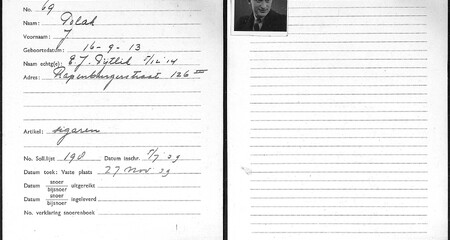 No. 69
Naam: Polak
Voornaam: J
Geboortedatum: 16-9-13
Naam echtg(e): E J. Pijtlid 7/12 '14
Adres: Rapenburgerstraat 126 III
Artikel: sigaren
No. Soll.lijst 198 Datum inschr. 7/7 39
Datum toek: Vaste plaats 27 Nov 39
Datum snoer / bijsnoer uitgereikt
Datum snoer / bijsnoer ingeleverd
No. verklaring snoerenboek